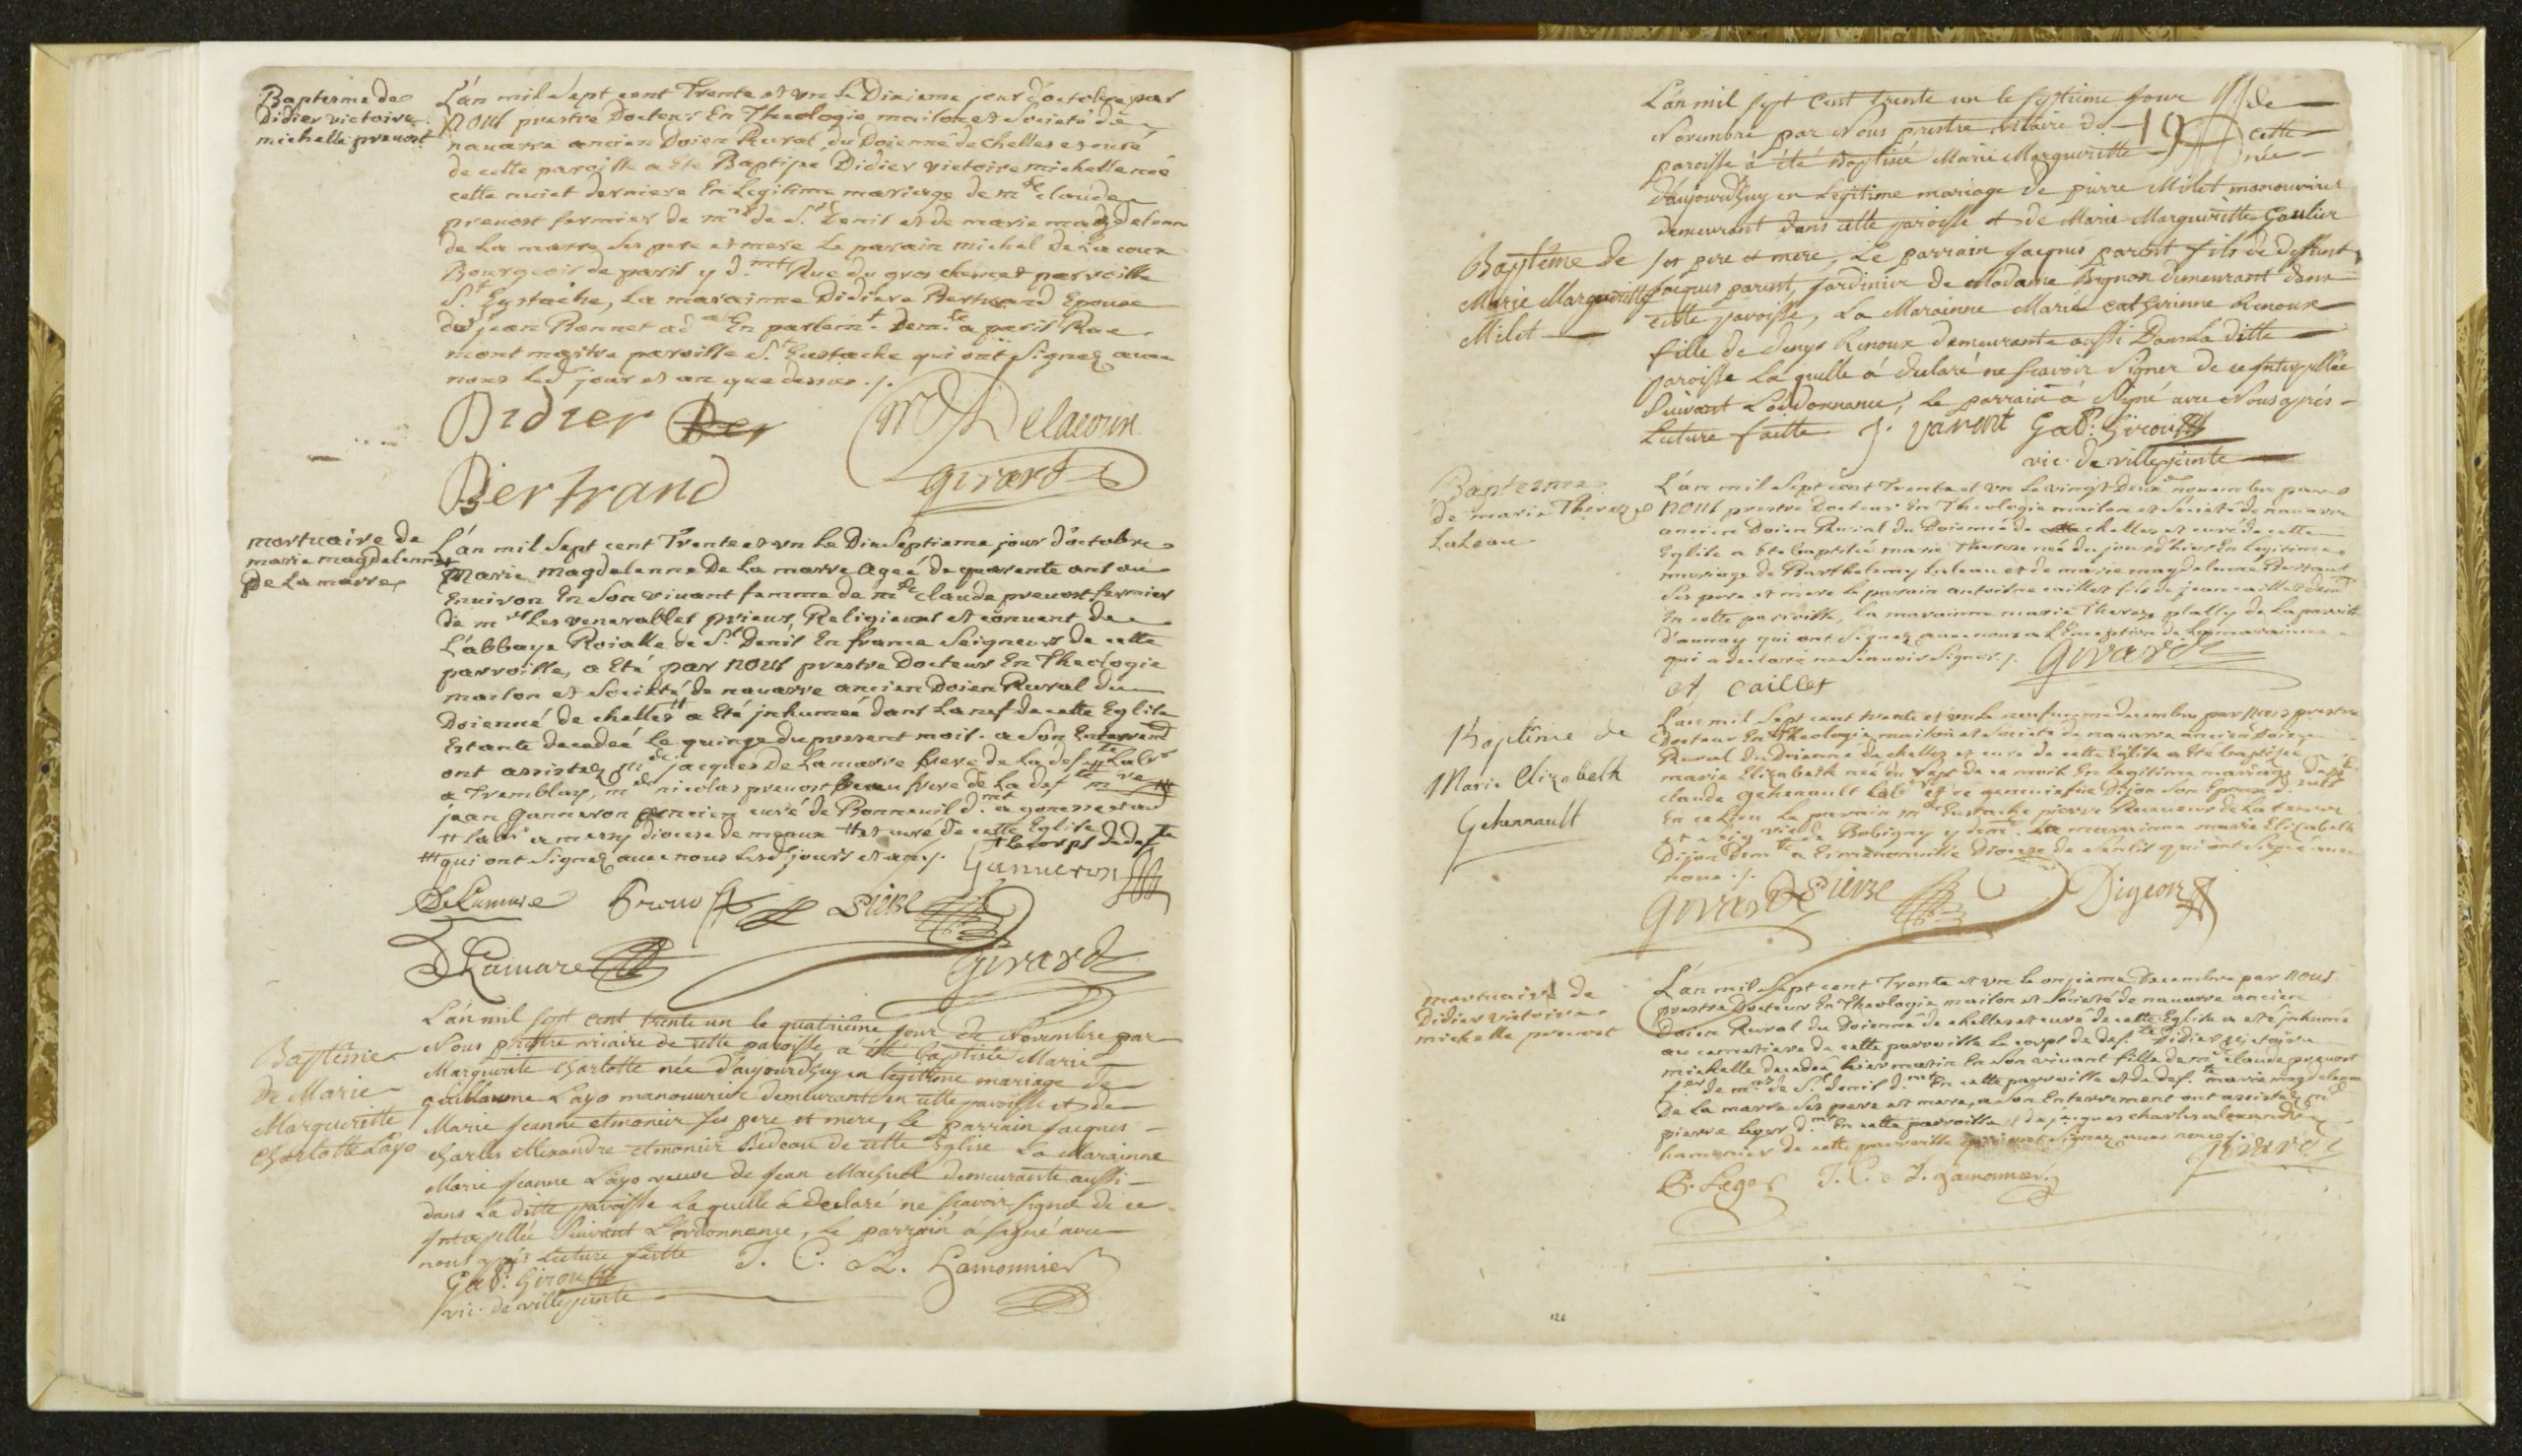 Baptesme de
Didier victoire
michelle prevost
L'an mil sept cent Trente et un le Dixieme jour d'octobre par
nous prestre Docteur En Theologie maison et Societé de
navarre ancien Doien Rural du Doienné de chelles et curé
de cette paroisse a Eté Baptisé Didier victoire michelle née
cette nuict derniere En Legitime mariage de mre claude
prevost fermier de mrs de St Denis et de marie magdelenne
de La marre ses pere et mere Le parain michel De La cour
Bourgeois de paris y dmt Rue du gros chenet parroisse
St Eystache, La marainne Didiere Bertrand Epouse
de jean Bonnet adat En parlemt. demte a paris Rue
montmartre paroisse St Eustache qui ont Signez avec
nous led jour et an que dessus ./.
Didier Ber
Bertrand
M Delacour
girard
mortuaire de
marie magdelenne
De La marre
L'an mil Sept cent Trente et un Le Dix Septieme jour d'octobre
Marie magdelenne De La marre agée de quarente ans ou
Environ En Son vivant femme de mre claude prevost fermier
de mrs Les venerables prieur, Religieux et convent de
L'abbaye Roialle de St Denis En france Seigneurs de cette
parroisse, a Eté par nous prestre Docteur En Theologie
maison et Societé de navarre ancien Doien Rural du
Doienné de chelles # a Eté jnhumeé dans La nef de cette Eglise
Estante decedeé Le quinze du present mois. a Son Enterremt
ont assistez mre jacques De Lamarre frere de La defte Labr
a Tremblay, mre nicolas prevost beau frere de La defte
jean Ganneron ancien curé de Bonneuil dmt a gonesse et au
# labr a messy diocese de meaux # et curé de cette Eglise
+ Le corps de defte
## qui ont Signez avec nous Lesd jours et an ./.
Ganneron
DeLamare Prevost Pierre
DLamare girard
Baptême
De Marie
Margueritte
Charlotte Layo
L'an mil sept cent trente un le quatrième jour de Novembre par
Nous prestre vicaire de cette paroisse a été baptisée Marie
Margueritte Charlotte née d'aujourd'huy en legitime mariage de
guillaume Layo manouvrier demeurant en cette paroisse et de
Marie Jeanne Amonier ses pere et mere, Le parrain Jacques
charles Alexandre Amonier Bedeau de cette Eglise La Marainne
Marie Jeanne Layo veuve de Jean Machuel demeurante aussi
dans La ditte paroisse Laquelle a declaré ne scavoir signer de ce
Interpellée Suivant L'ordonnance, Le parrain a signé avec
nous après lecture faitte J. C. A. hamonnier
Gab: Giroust
vic. de villepinte
Baptême de
Marie Margueritte
Milet
L'an mil sept cent trente un le septième jour de
Novembre par Nous prestre vicaire de 19 cette
paroisse a été Baptisée Marie Margueritte née
d'aujourd'huy en Legitime mariage de pierre Milet manouvrier
demeurant dans cette paroisse et de Marie Margueritte Gaulier
ses pere et mere, Le parrain Jacques parent fils de deffunt
Jacques parent, jardinier de Madame Bignon demeurant dans
cette paroisse, La Marainne Marie Catherinne Renoux
fille de Denys Renoux demeurante aussi Dans La ditte
paroisse Laquelle a declaré ne scavoir Signer de ce Interpellée
Suivant L'ordonnance, le parrain a Signé avec Nous après
Lecture faitte J. parent Gab: Giroust
vic. de villepinte
Baptesme
de marie Thereze
Luleau
L'an mil Sept cent Trente et un Le vingt Deux novembre par
nous prestre Docteur En Theologie maison et Societé de navarre
ancien Doien Rural du Doienné de chelles et curé de cette
Eglise a Eté baptisée marie Thereze née du jourd'hier En Legitime
mariage de Barthelemy Luleau et de marie magdelenne
Ses pere et mere Le parain antoine caillet fils de jean caillet demt
En cette paroisse, La marainne marie Thereze plally de La paroisse
d'aunay qui ont Signez avec nous a L'Exception de La marainne
qui a declaré ne Scavoir Signer ./. Girard
at caillet
Baptême de
Marie Elizabeth
Gehennault
L'an mil Sept cent trente et un le neufvieme decembre par nous prestre
Docteur En Theologie maison et Societé de navarre ancien Doien
Rural du Doienné de chelles et curé de cette Eglise a Eté baptisée
marie Elizabeth née du Sept de ce mois En Legitime mariage de
claude gehenault Labr et de genevieve Dijon Son Epouse
En ce Lieu Le parain mre Eustache pierre Receveur de La terre
et Seigrie de Bobigny y demt. La marainne marie Elizabeth
Dijon Demte a Ermenonville Diocese de Senlis qui ont Signé avec
nous ./.
Girard Pierre Digeon
mortuaire de
Didier victoire
michelle prevost
L'an mil Sept cent Trente et un le onzieme Decembre par nous
prestre Docteur En Theologie maison et Societé de navarre ancien
Doien Rural du Doienné de chelles et curé de cette Eglise a eté jnhumé
au cemetiere de cette parroisse Le corps de defte Didier victoire
michelle decedée hier matin En Son vivant fille de mre claude prevost
fer de mrs de St Denis dmt En cette parroisse et de defte marie magdelenne
De La marre Ses pere et mere, a Son Enterrement ont assistez
pierre Leger dmt En cette parroisse et de jacques charles alexandre
hamonier de cette parroisse qui ont Signez avec nous ./.
P. Leger J. C. A. hamonnier girard